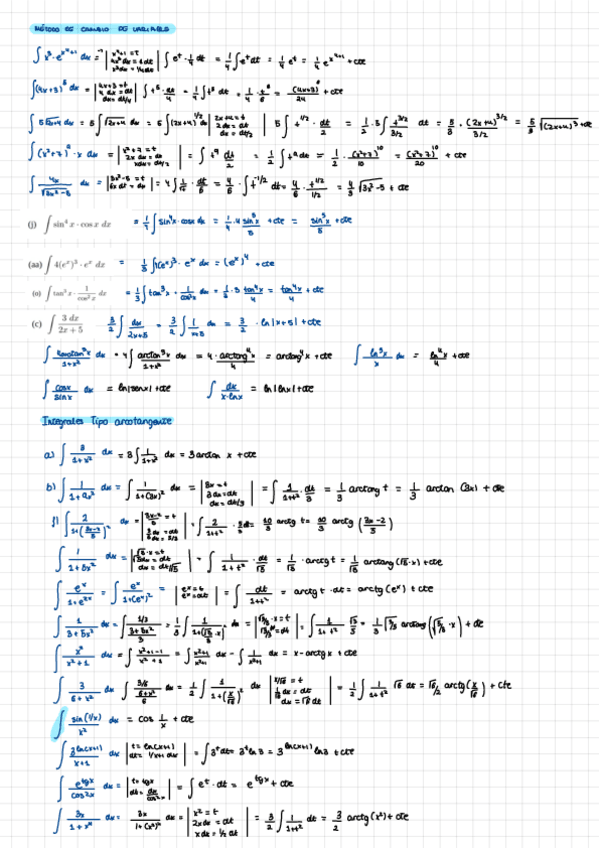 MÉTODO DE CAMBIO DE VARIABLE
∫ x³ · e^(x⁴+1) dx = | x⁴+1 = t  4x³ dx = dt  x³ dx = 1/4 dt | ∫ e^t · 1/4 dt = 1/4 ∫ e^t dt = 1/4 e^t = 1/4 e^(x⁴+1) + cte
∫ (4x+3)⁵ dx = | 4x+3 = t  4 dx = dt  dx = dt/4 | ∫ t⁵ · dt/4 = 1/4 ∫ t⁵ dt = 1/4 · t⁶/6 = (4x+3)⁶/24 + cte
∫ 5√(2x+4) dx = 5 ∫ √(2x+4) dx = 5 ∫ (2x+4)^(1/2) dx | 2x+4 = t  2 dx = dt  dx = dt/2 | 5 ∫ t^(1/2) · dt/2 = 1/2 · 5 ∫ t^(3/2)/(3/2) dt = 5/3 · (2x+4)^(3/2)/(3/2) = 5/3 √(2x+4)³ + cte
∫ (x²+7)⁹ · x dx = | x²+7 = t  2x dx = dt  x dx = dt/2 | = ∫ t⁹ dt/2 = 1/2 ∫ t⁹ dt = 1/2 · (x²+7)¹⁰/10 = (x²+7)¹⁰/20 + cte
∫ 4x/√(3x²-5) dx = | 3x²-5 = t  6x dt = dx | = 4 ∫ 1/√t · dt/6 = 4/6 · ∫ t^(-1/2) dt = 4/6 · t^(1/2)/(1/2) = 4/3 √(3x²-5) + cte
(j) ∫ sin⁴ x · cos x dx = 1/4 ∫ sin⁴x · cosx dx = 1/4 · 4 sin⁵x/5 + cte = sin⁵x/5 + cte
(aa) ∫ 4(eˣ)³ · eˣ dx = 1/3 ∫ 4(eˣ)³ · eˣ dx = (eˣ)⁴ + cte
(o) ∫ tan³ x · 1/cos² x dx = 1/3 ∫ tan³x · 1/cos²x dx = 1/3 · 3 tan⁴x/4 = tan⁴x/4 + cte
(c) ∫ 3 dx/(2x+5) 3/2 ∫ dx/(2x+5) = 3/2 ∫ 1/(x+5) dx = 3/2 · ln|x+5| + cte
∫ 4arctan³x/(1+x²) dx = 4 ∫ arctan³x/(1+x²) dx = 4 · arctang⁴x/4 = arctang⁴x + cte ∫ ln³x/x dx = ln⁴x/4 + cte
∫ cosx/sinx dx = ln|senx| + cte ∫ dx/(x·lnx) = ln|lnx| + cte
Integrales Tipo arcotangente
a) ∫ 3/(1+x²) dx = 3 ∫ 1/(1+x²) dx = 3 arctan x + cte
b) ∫ 1/(1+9x²) dx = ∫ 1/(1+(3x)²) dx = | 3x = t  3 dx = dt  dx = dt/3 | = ∫ 1/(1+t²) · dt/3 = 1/3 arctang t = 1/3 arctan (3x) + cte
f) ∫ 2/(1+((3x-2)/5)²) dx = | (3x-2)/5 = t  3/5 dx = dt | = ∫ 2/(1+t²) · 5/3 dt = 10/3 arctg t = 10/3 arctg ((3x-2)/5)
∫ 1/(1+5x²) dx = | √5·x = t  √5 dx = dt  dx = dt/√5 | = ∫ 1/(1+t²) · dt/√5 = 1/√5 · arctg t = 1/√5 arctang (√5·x) + cte
∫ eˣ/(1+e²ˣ) = ∫ eˣ/(1+(eˣ)²) = | eˣ = t  eˣ = dt | = ∫ dt/(1+t²) = arctg t · dt = arctg (eˣ) + cte
∫ 1/(3+5x²) dx = ∫ (1/3)/((3+5x²)/3) = 1/3 ∫ 1/(1+(√(5/3)·x)²) dx = | √5/3 · x = t  √5/3 dx = dt | = ∫ 1/(1+t²) √3/5 = 1/3 √3/5 arctang (√5/3 · x) + cte
∫ x²/(x²+1) dx = ∫ (x²+1-1)/(x²+1) = ∫ (x²+1)/(x²+1) dx - ∫ 1/(x²+1) dx = x - arctg x + cte
∫ 3/(6+x²) dx = ∫ (3/6)/((6+x²)/6) dx = 1/2 ∫ 1/(1+(x/√6)²) dx | x/√6 = t  1/√6 dx = dt  dx = √6 dt | = 1/2 ∫ 1/(1+t²) √6 dt = √6/2 arctg (x/√6) + cte
∫ sin(1/x)/x² dx = cos 1/x + cte
∫ 3^(ln(x+1))/(x+1) dx | t = ln(x+1)  dt = 1/(x+1) dx | = ∫ 3^t dt = 3^t ln 3 = 3^(ln(x+1)) ln 3 + cte
∫ e^(tgx)/cos²x dx = | t = tgx  dt = dx/cos²x | = ∫ e^t · dt = e^(tgx) + cte
∫ 3x/(1+x⁴) dx = 3x/(1+(x²)²) dx = | x² = t  2x dx = dt  x dx = 1/2 dt | = 3/2 ∫ 1/(1+t²) dt = 3/2 arctg (x²) + cte